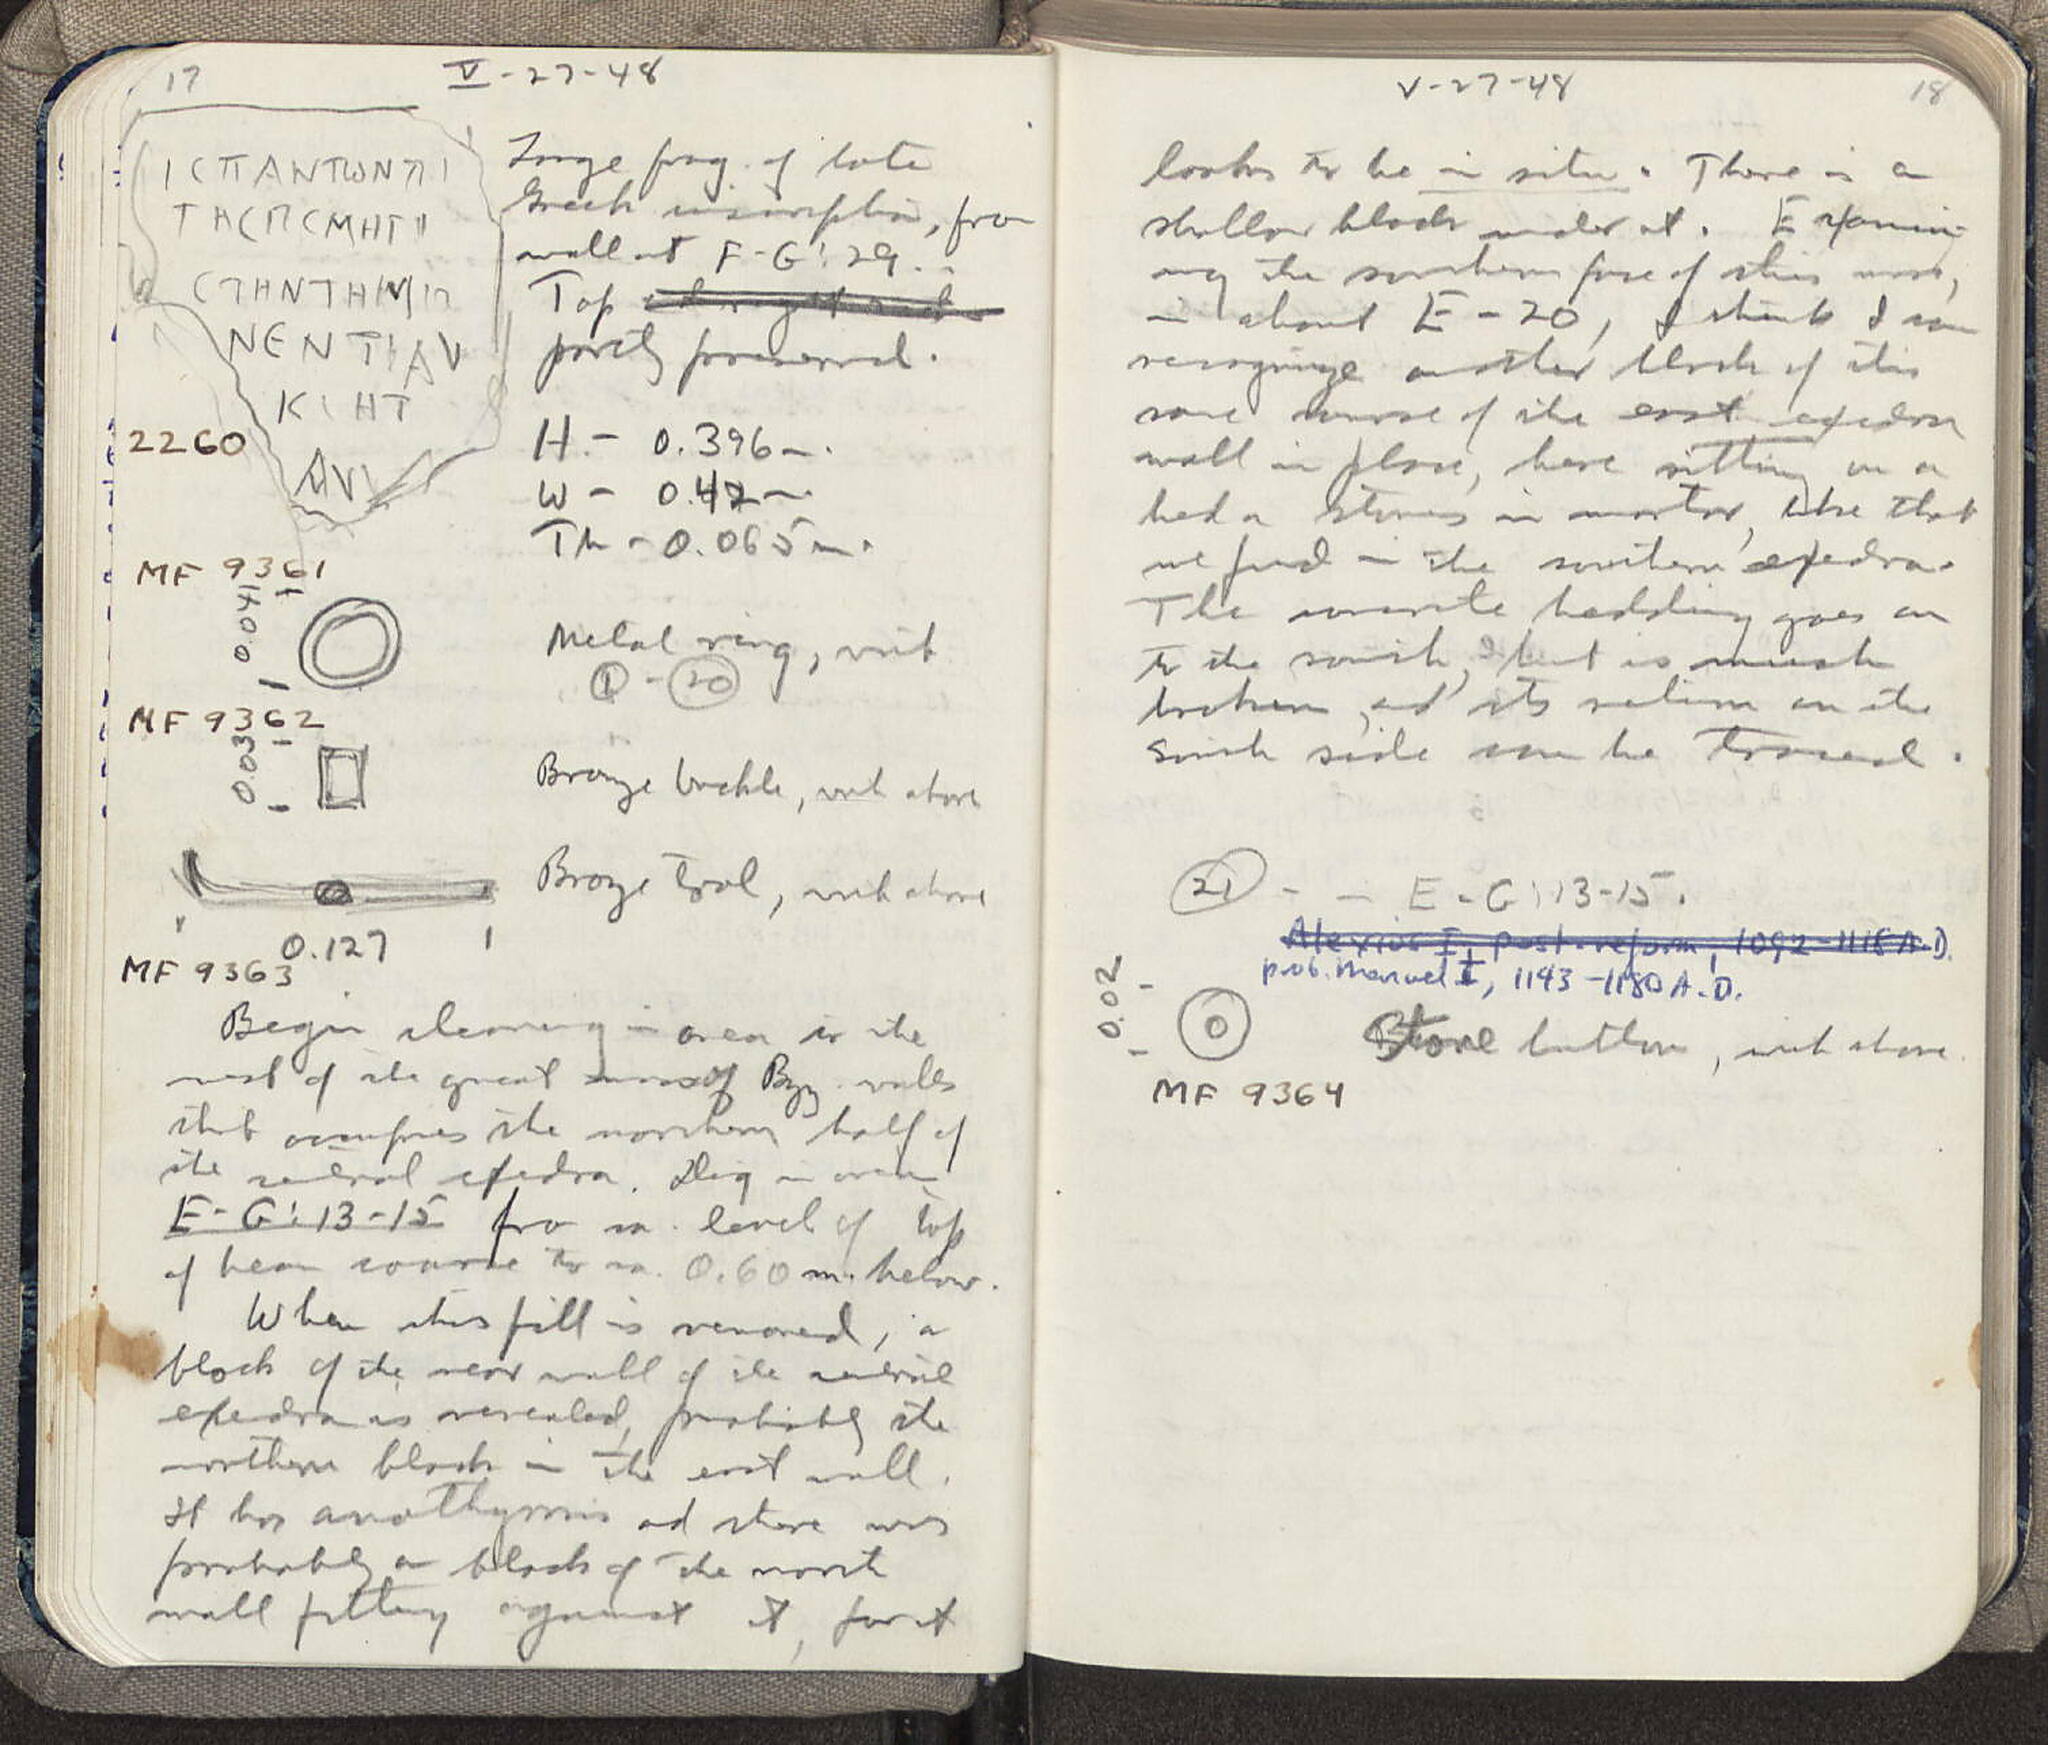 17
V-27-48
ΙCΠΑΝΤωΝΠΙ
ΤΗCΠCΜΗΓΙΙ
CΤΗΝΤΗΝ
ΝΕΝΤΙΑV
ΚΙΗΤ
ΑV
2260
Large frag. of late
Greek inscription, from
wall at F-G:29.
Top
partly preserved.
H. - 0.396 m.
W - 0.42 m.
Th - 0.065 m.
MF 9361
0.041
Metal ring, with
① - 20
MF 9362
0.03
Bronze buckle, with above
Bronze tool, with above
0.127
MF 9363
Begin cleaning in area to the
west of the great mass of Byz. walls
that occupies the northern half of
the central exedra. Dig in area
E-G:13-15 fro m. level of top
of beam course to m. 0.60 m. below.
When this fill is removed, a
block of the rear wall of the central
exedra is revealed, probably the
northern block in the east wall.
It has anathyrosis and there was
probably a block of the north
wall fitting against it, for it
V-27-48
18
looks to be in situ. There is a
shallow block under it. Examin-
ing the southern face of this mass,
in about E-20, I think I can
recognize another block of this
same course of the east exedra
wall in place, here sitting on a
bed of stones in mortar, like that
we find in the southern exedra.
The concrete bedding goes on
to the south, but is much
broken, and its return on the
south side can be traced.
21 - - E-G:13-15.
Alexius I, post-reform, 1092-1118 A.D.
prob. Manuel I, 1143-1180 A.D.
0.02
Stone button, with above.
MF 9364